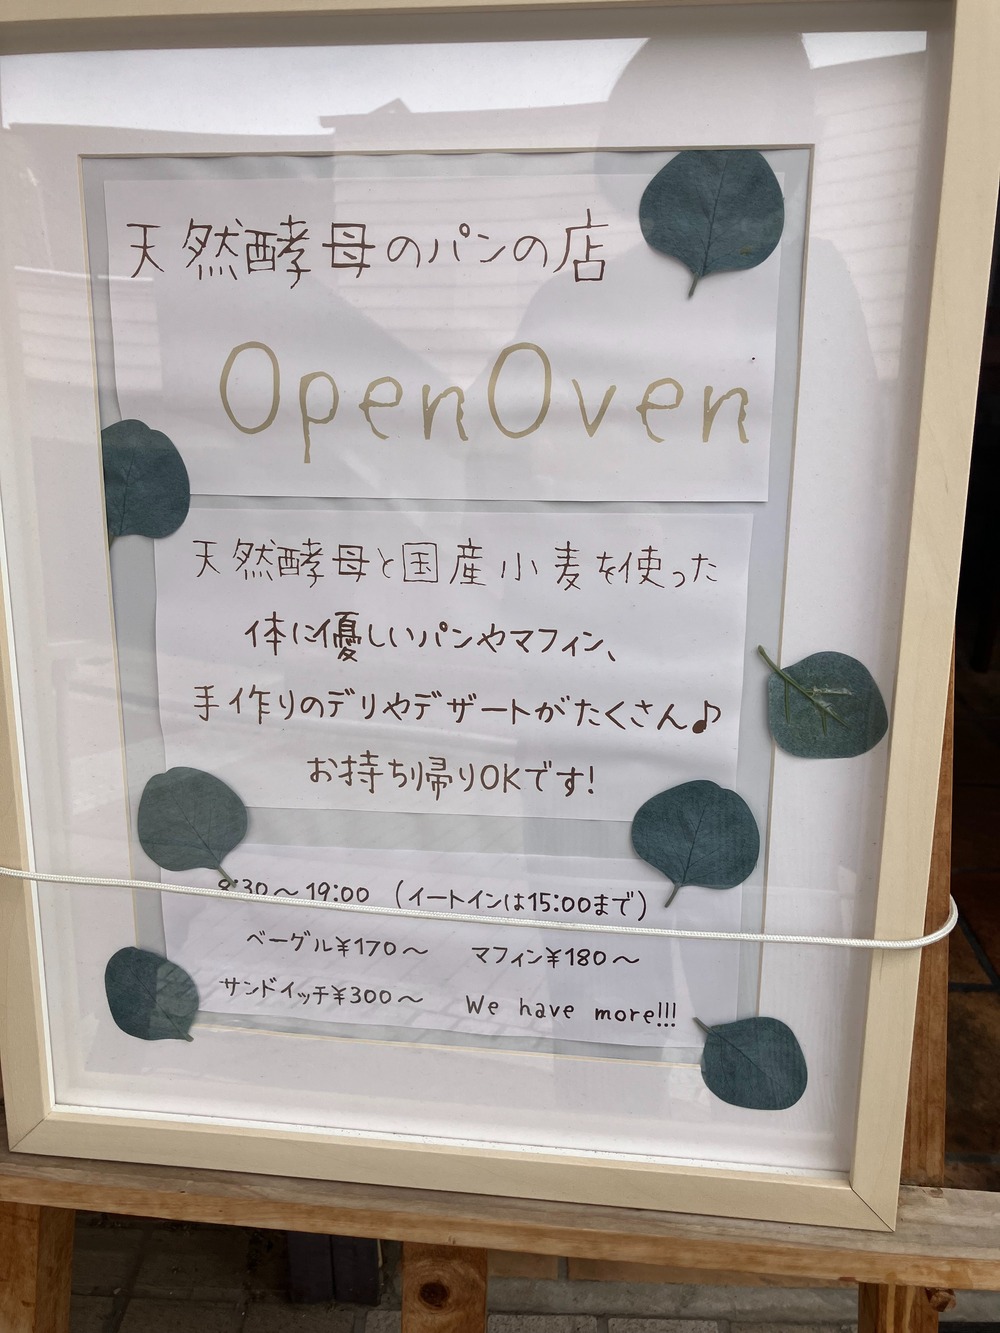 天然酵母のパンの店
OpenOven
天然酵母と国産小麦を使った
体に優しいパンやマフィン、
手作りのデリやデザートがたくさん♪
お持ち帰りOKです!
9:30～19:00 (イートインは15:00まで)
ベーグル¥170～ マフィン¥180～
サンドイッチ¥300～ We have more!!!